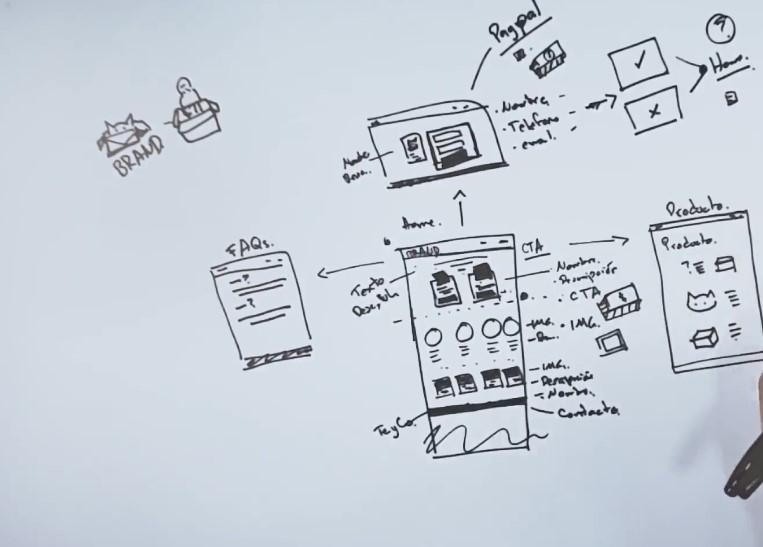 Paypal
Nombre
Telefono
email.
Home.
BRAND
Home.
FAQs.
?
?
BRAND
CTA
Texto
Nombre.
Descripción
CTA
IMG.
IMG.
IMG.
Descripción
Nombre
Contacto.
TeyCo.
Producto.
Producto.
?